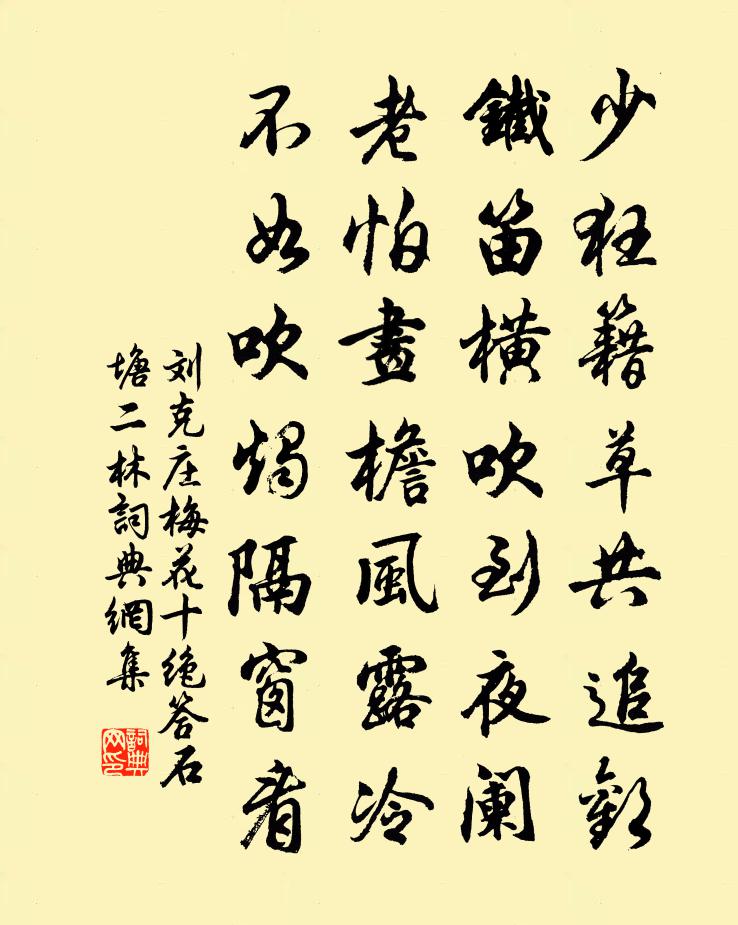 少狂籍草共追歡
鐵笛橫吹到夜闌
老怕畫檐風露冷
不如吹燭隔窗看
刘克庄梅花十绝答石
塘二林詞典網集
詞典网印